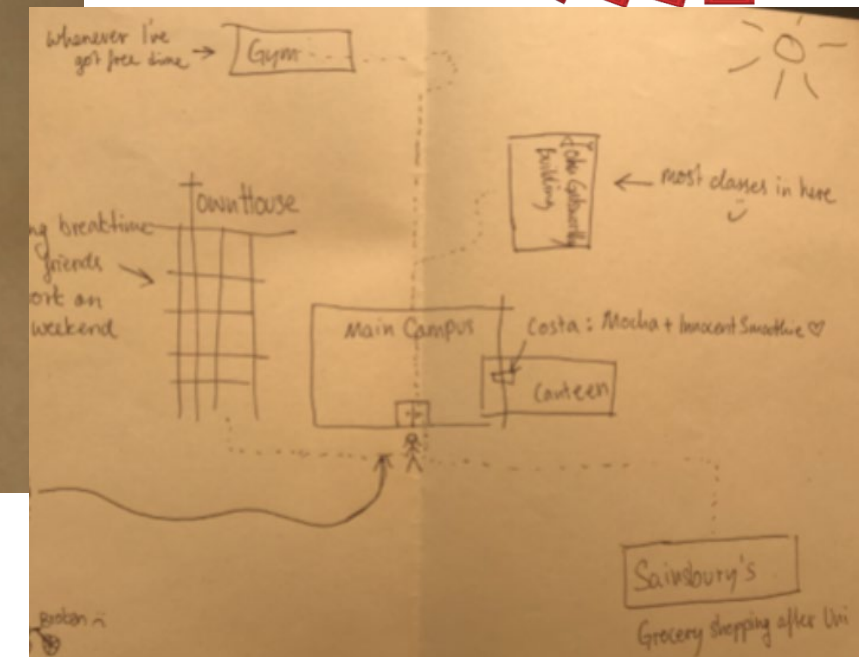 Whenever I've
got free time
Gym
John Galsworthy
building
most classes in here
TownHouse
breaktime
friends
on
weekend
Main Campus
Costa : Mocha + Innocent Smoothie ♡
Canteen
Sainsbury's
Grocery shopping after Uni
Broken